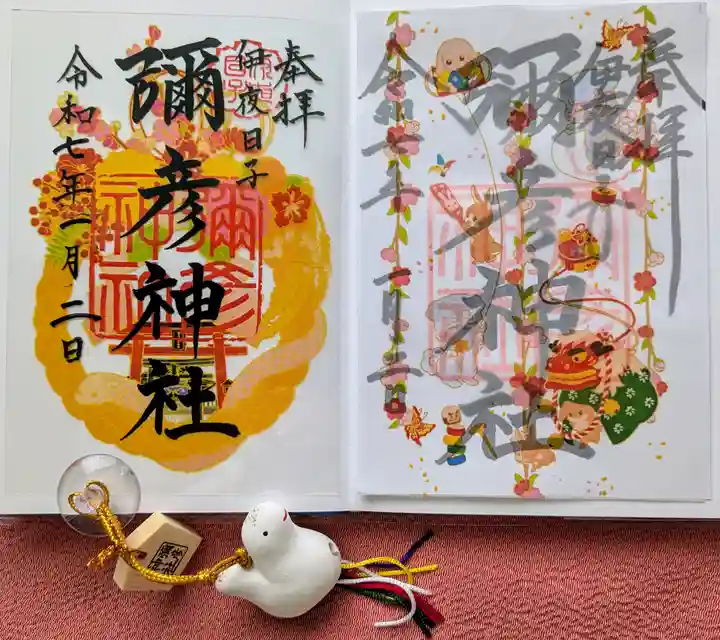 奉拝
伊夜日子
彌彦神社
令和七年一月二日
彌彦
神社
奉拝
伊夜日子
彌彦神社
令和七年一月二日